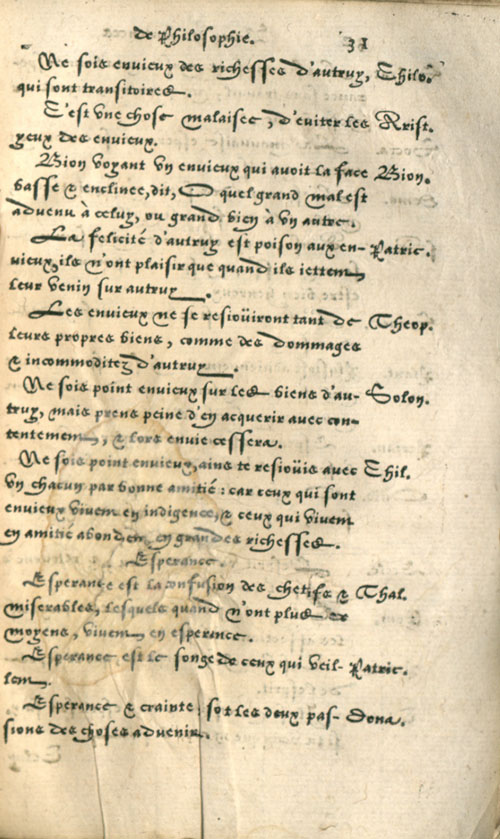 de Philosophie. 31
Ne sois envieux des richesses d'autruy, Thilo.
qui sont transitoires.
C'est vne chose malaisee, d'euiter les Arist.
yeux des envieux.
Bion voyant vn envieux qui avoit la face Bion.
basse & enclinee, dit, O quel grand mal est
advenu à celuy, ou grand bien à vn autre.
La felicité d'autruy est poison aux en- Patric.
vieux, ils n'ont plaisir que quand ils iettent
leur venin sur autruy.
Les envieux ne se resioüiront tant de Theop.
leurs propres biens, comme des dommages
& incommoditez d'autruy.
Ne sois point envieux sur les biens d'au- Solon.
truy, mais prens peine d'en acquerir avec con-
tentement, & lors envie cessera.
Ne sois point envieux, ains te resioüis avec Thil.
vn chacun par bonne amitié : car ceux qui sont
envieux vivent en indigence, & ceux qui vivent
en amitié abondent en grandes richesses.
Esperance.
Esperance est la confusion des chetifs & Thal.
miserables, lesquels quand n'ont plus de
moyens, vivent en esperance.
Esperance est le songe de ceux qui veil- Patric.
lent.
Esperance & crainte sõt les deux pas- Dona.
sions des choses advenir.